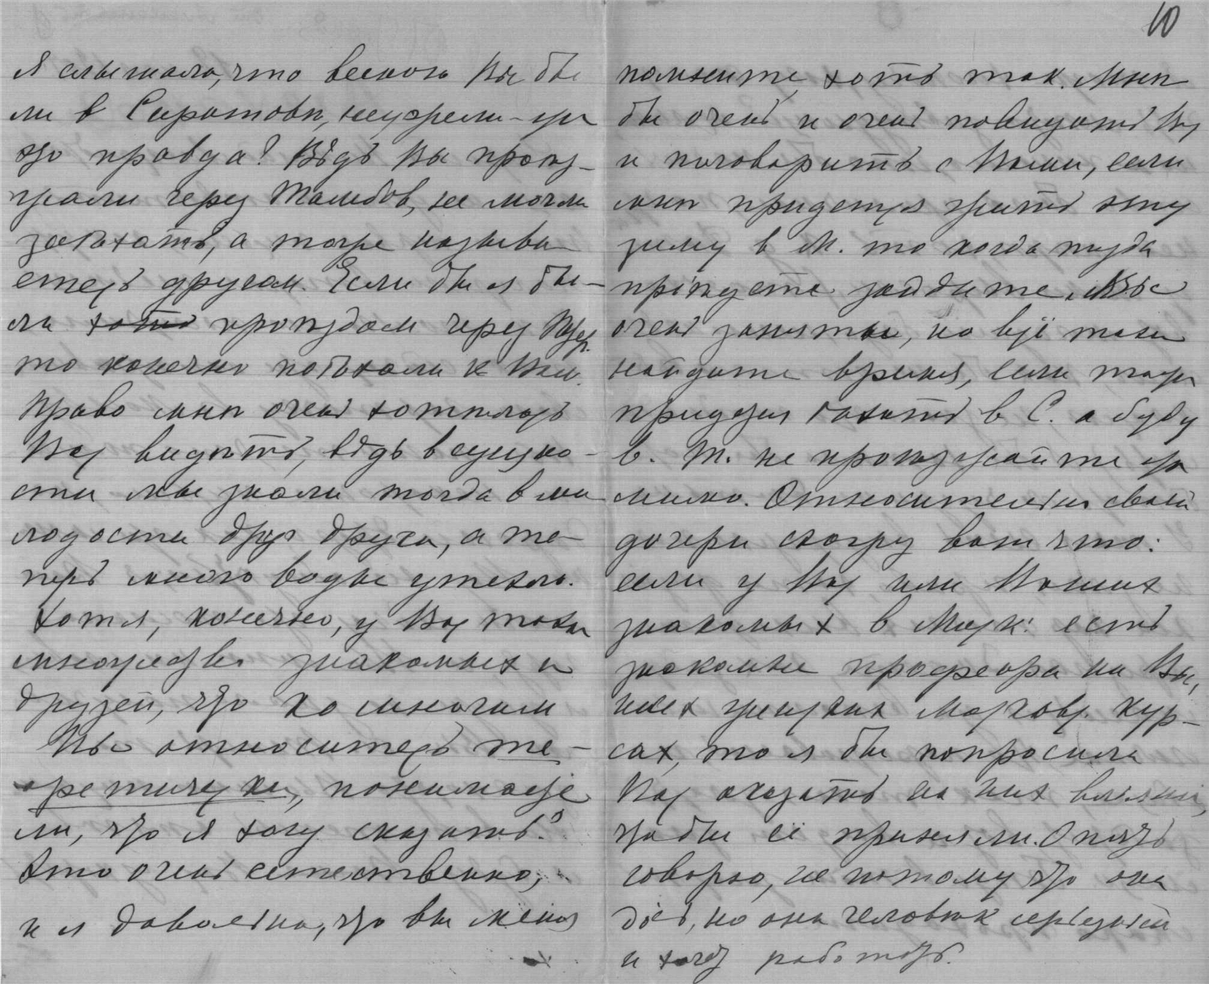 я слышала, что весною Вы бы
ли в Саратовѣ, неужели-же
это правда? Вѣдь Вы проѣз-
жали через Тамбов, не могли
заѣхать, а тоже называ
етесь другом. Если бы я бы-
ла хоть проѣздом через
то конечно поѣхала к Вам.
Право мнѣ очень хотѣлось
Вас видѣть, вѣдь в сущно-
сти мы знали тогда в мо
лодости друг друга, а те-
перь много воды утекло.
Хотя, конечно, у Вас такое
множество знакомых и
друзей, что ко многим
Вы относитесь те-
оретически, понимаете
ли, что я хочу сказать?
Это очень естественно,
и я довольна, что вы меня
10
помните хоть так. Мнѣ
бы очень и очень повидать Вас
и поговорить с Вами, если
мнѣ придется жить эту
зиму в М. то когда туда
пріѣдете зайдите. Вы
очень заняты, но всё таки
найдите время, если тоже
придется ѣхать в С. а буду
в. Т. не проѣзжайте уж
мимо. Относительно своей
дочери скажу вот что:
если у Вас или Ваших
знакомых в Моск: есть
знакомые профессора на Выс
ших женских Москов. кур-
сах, то я бы попросила
Вас оказать на них вліяніе,
чтобы её приняли. Опять
говорю, не потому что она
дочь, но она человѣк серьезный
и хочет работать.